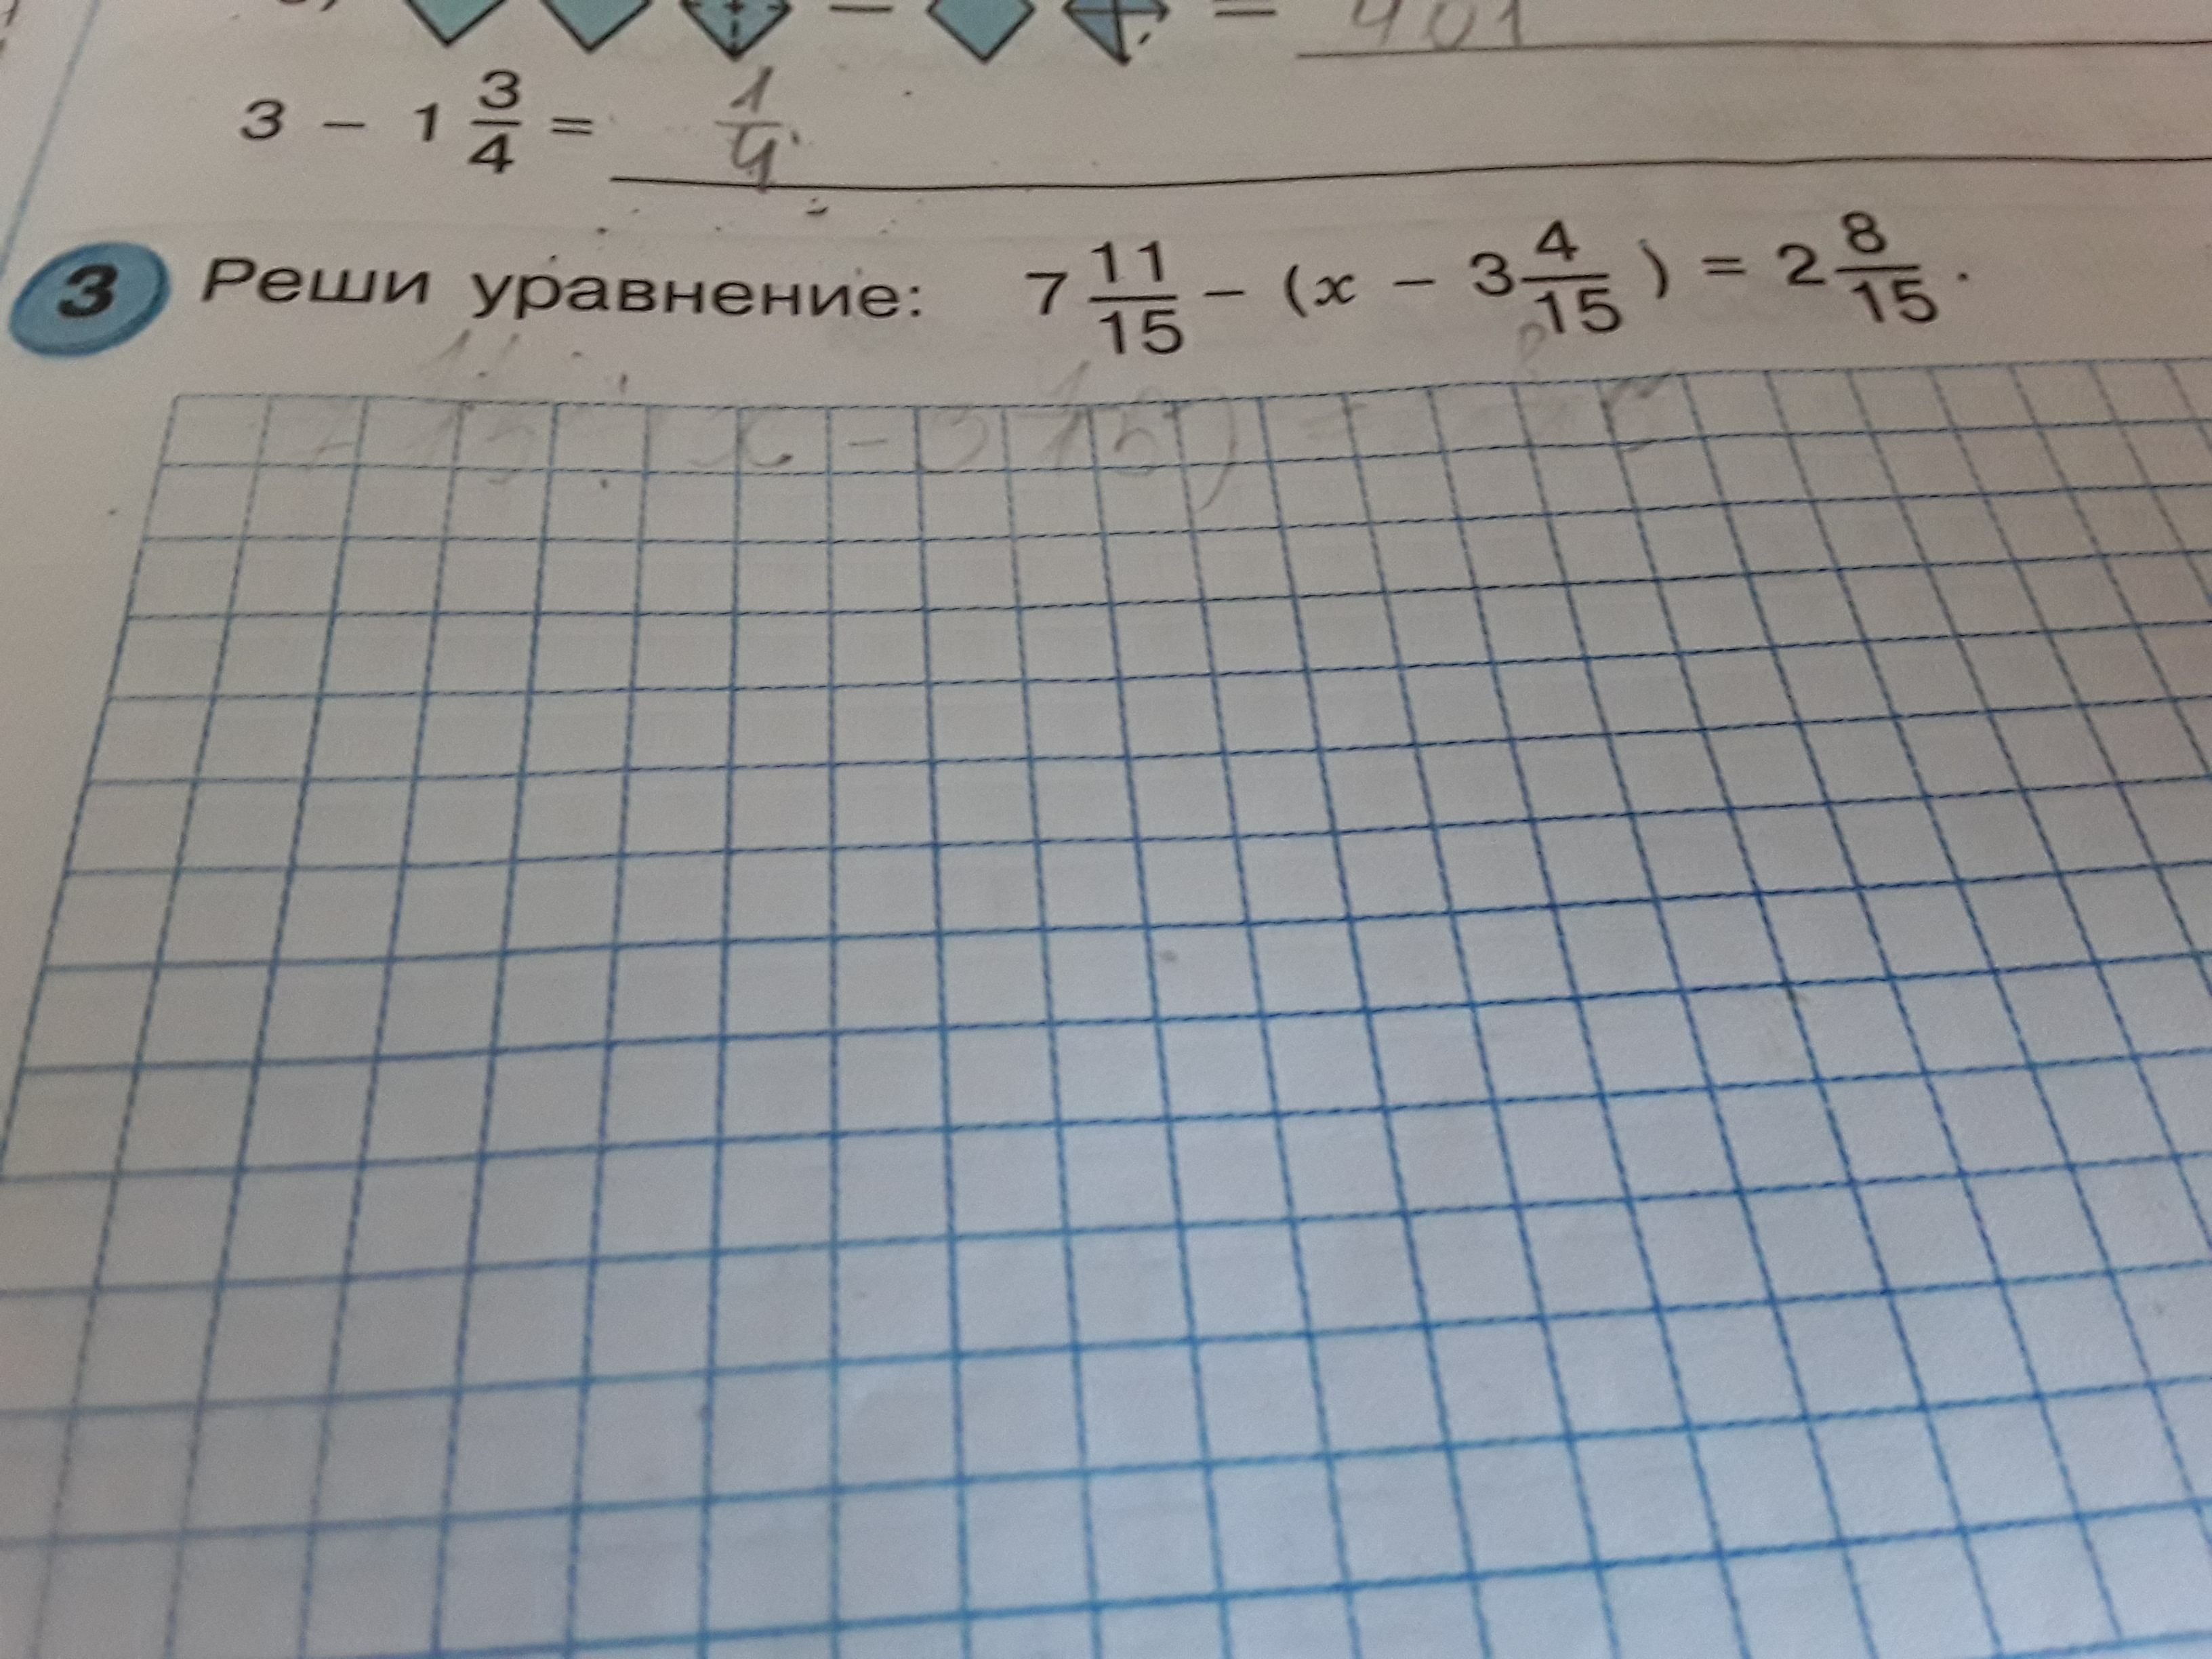 — = 401
3 – 1 3/4 = 1/4
3 Реши уравнение: 7 11/15 – (x – 3 4/15) = 2 8/15.
x – 3 15) =